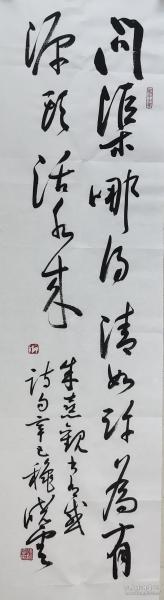 问渠哪得清如许为有
源头活水来
朱熹观书有感
诗句辛巳穐晓云